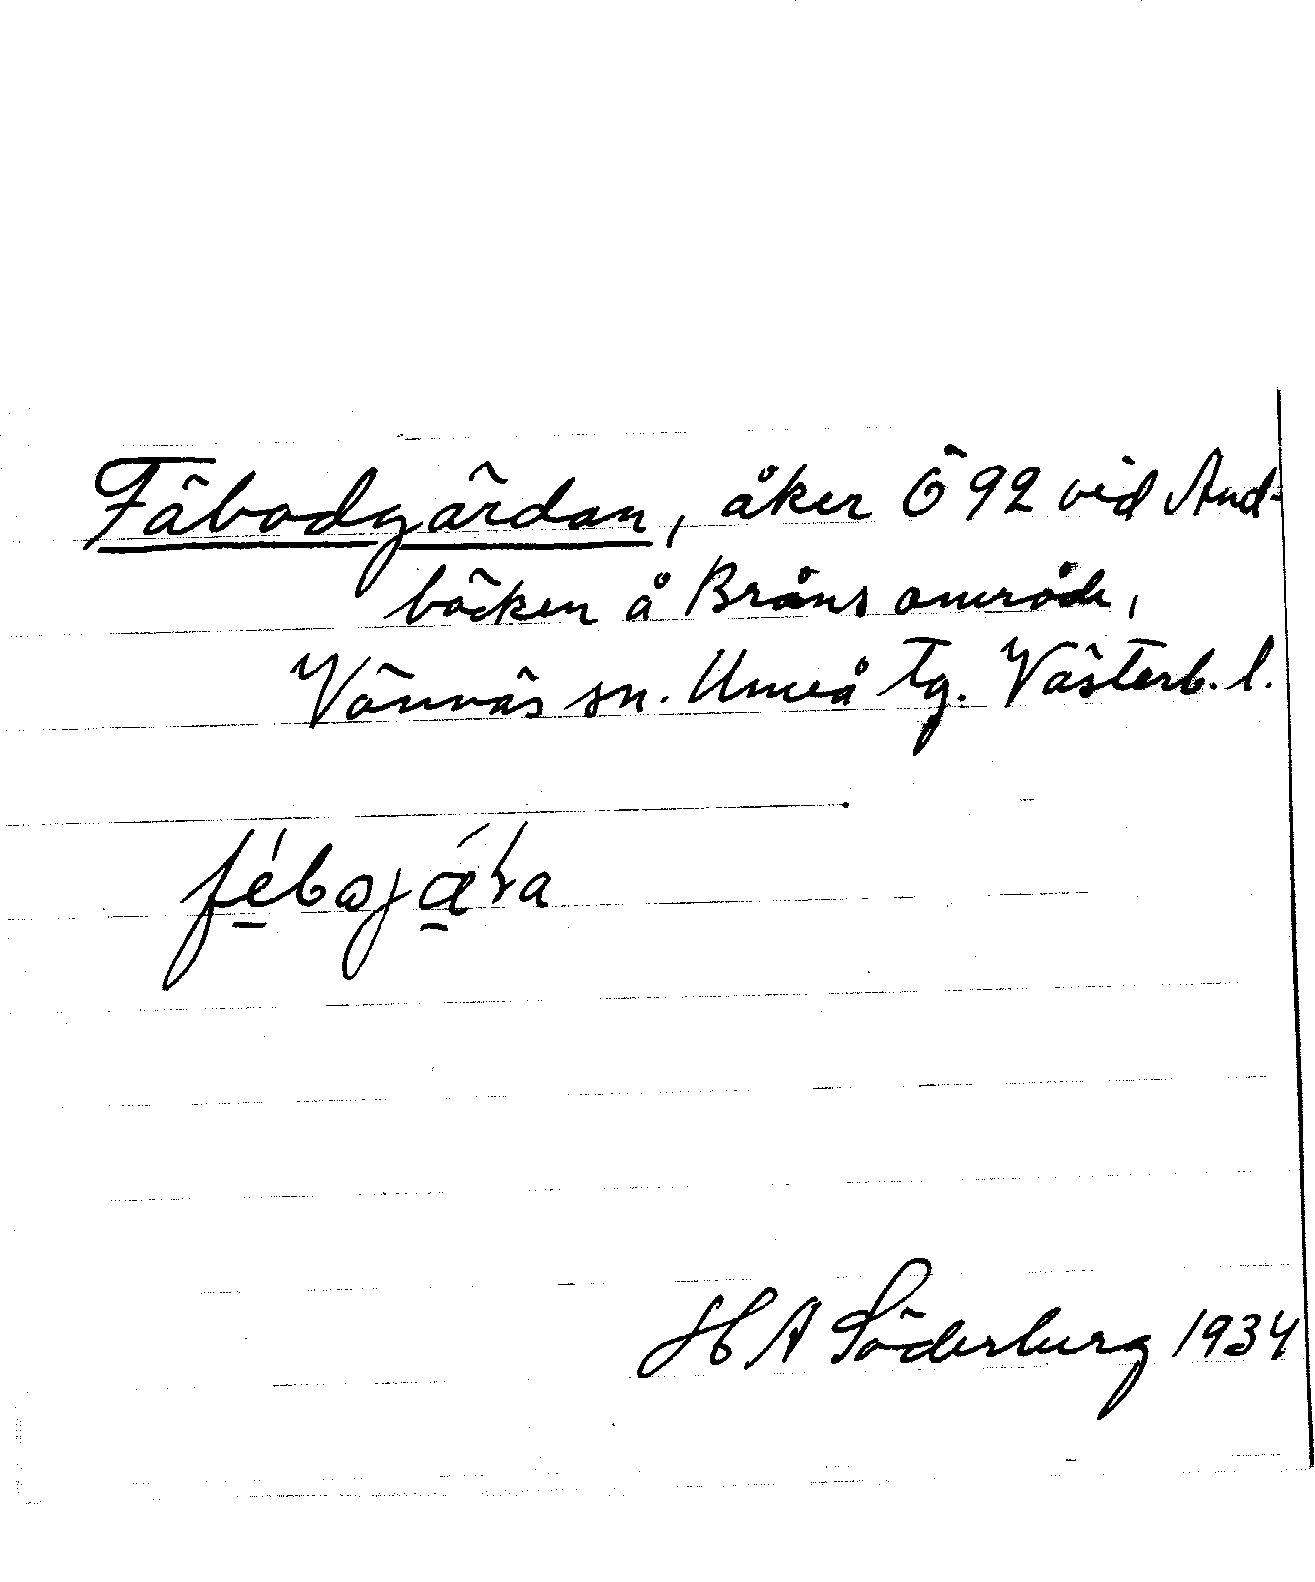 Fäbodgärdan, åker Ö 92 vid And-
bäcken å Bråns område,
Vännäs sn. Umeå tg. Västerb. l.
H A Söderberg 1934